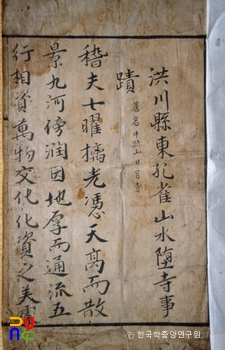 洪川縣東孔雀山水墮寺事
蹟 舊名牛跡山日月寺
稽夫七曜摛光憑天高而散
景九河傍润因地厚而通流五
行相資萬物交化化資之美
ⓒ 한국학중앙연구원